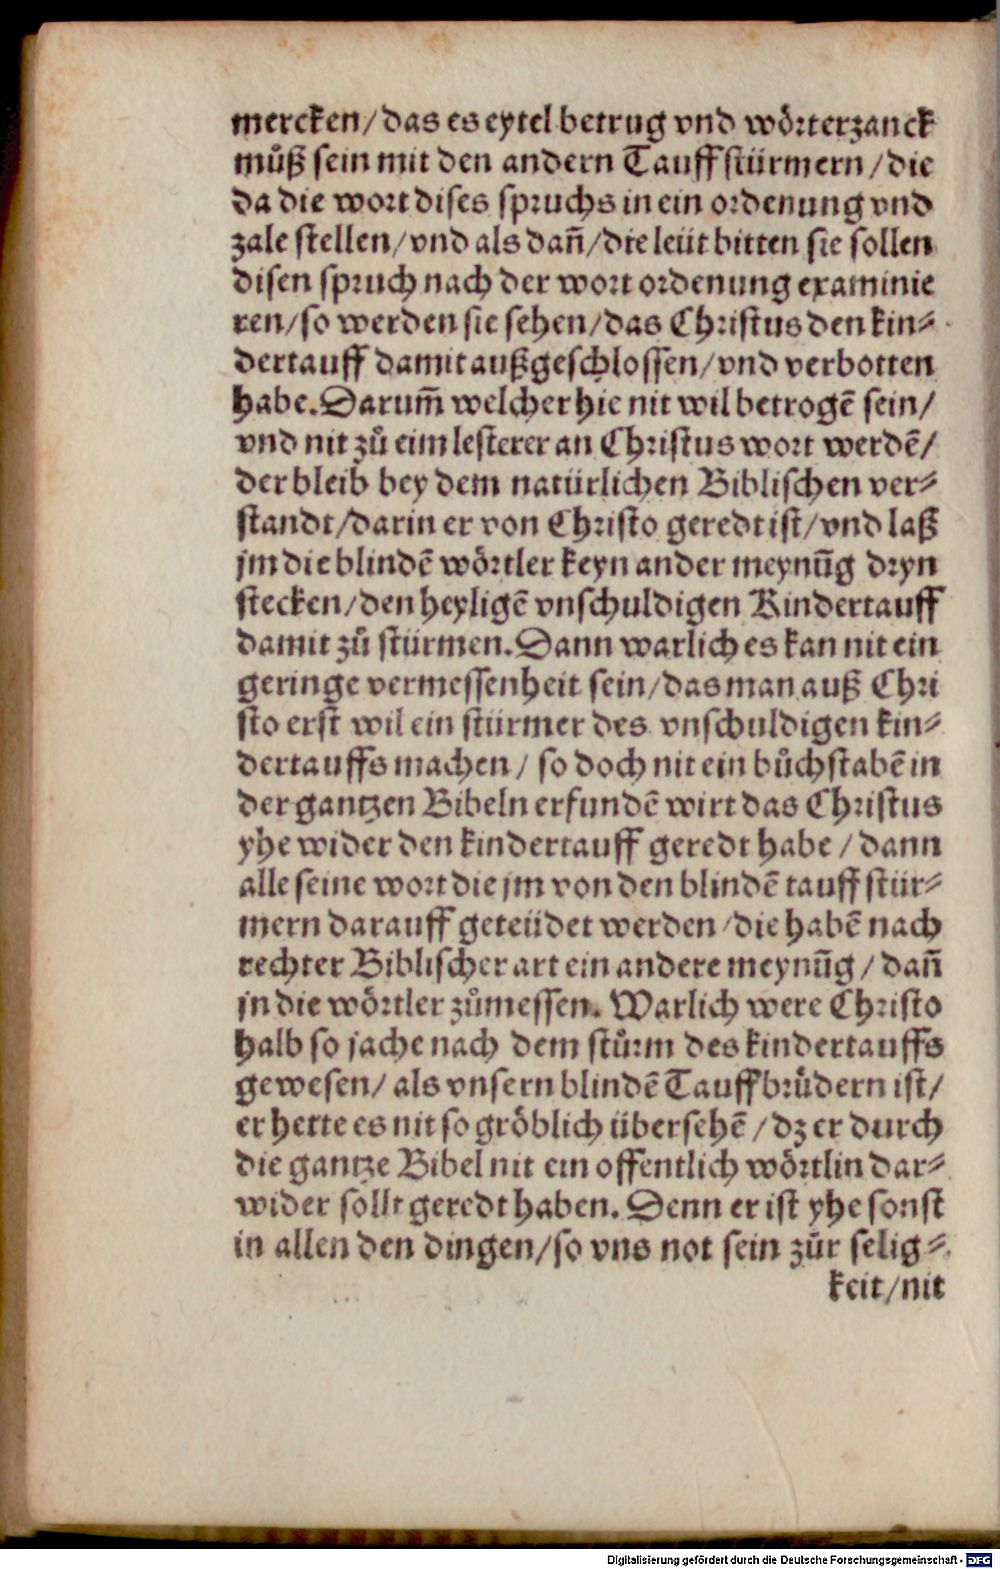 mercken/das es eytel betrug vnd wörterzanck
můß sein mit den andern Tauffstürmern/die
da die wort dises spruchs in ein ordenung vnd
zale stellen/vnd als dañ/die leüt bitten sie sollen
disen spruch nach der wort ordenung examinie
ren/so werden sie sehen/das Christus den kin⸗
dertauff damit außgeschlossen/vnd verbotten
habe. Darum̃ welcher hie nit wil betrogẽ sein/
vnd nit zů eim lesterer an Christus wort werdẽ/
der bleib bey dem natürlichen Biblischen ver⸗
standt/darin er von Christo geredt ist/vnd laß
jm die blindẽ wörtler keyn ander meynũg dryn
stecken/den heyligẽ vnschuldigen Kindertauff
damit zů stürmen. Dann warlich es kan nit ein
geringe vermessenheit sein/das man auß Chri
sto erst wil ein stürmer des vnschuldigen kin⸗
dertauffs machen/ so doch nit ein bůchstabẽ in
der gantzen Bibeln erfundẽ wirt das Christus
yhe wider den kindertauff geredt habe/dann
alle seine wort die jm von den blindẽ tauffstür⸗
mern darauff geteüdet werden/die habẽ nach
rechter Biblischer art ein andere meynũg/dañ
jn die wörtler zůmessen. Warlich were Christo
halb so jache nach dem stůrm des kindertauffs
gewesen/als vnsern blindẽ Tauffbrůdern ist/
er hette es nit so gröblich übersehẽ/dz er durch
die gantze Bibel nit ein offentlich wörtlin dar⸗
wider sollt geredt haben. Denn er ist yhe sonst
in allen den dingen/so vns not sein zůr selig⸗
keit/nit
Digitalisierung gefördert durch die Deutsche Forschungsgemeinschaft - DFG